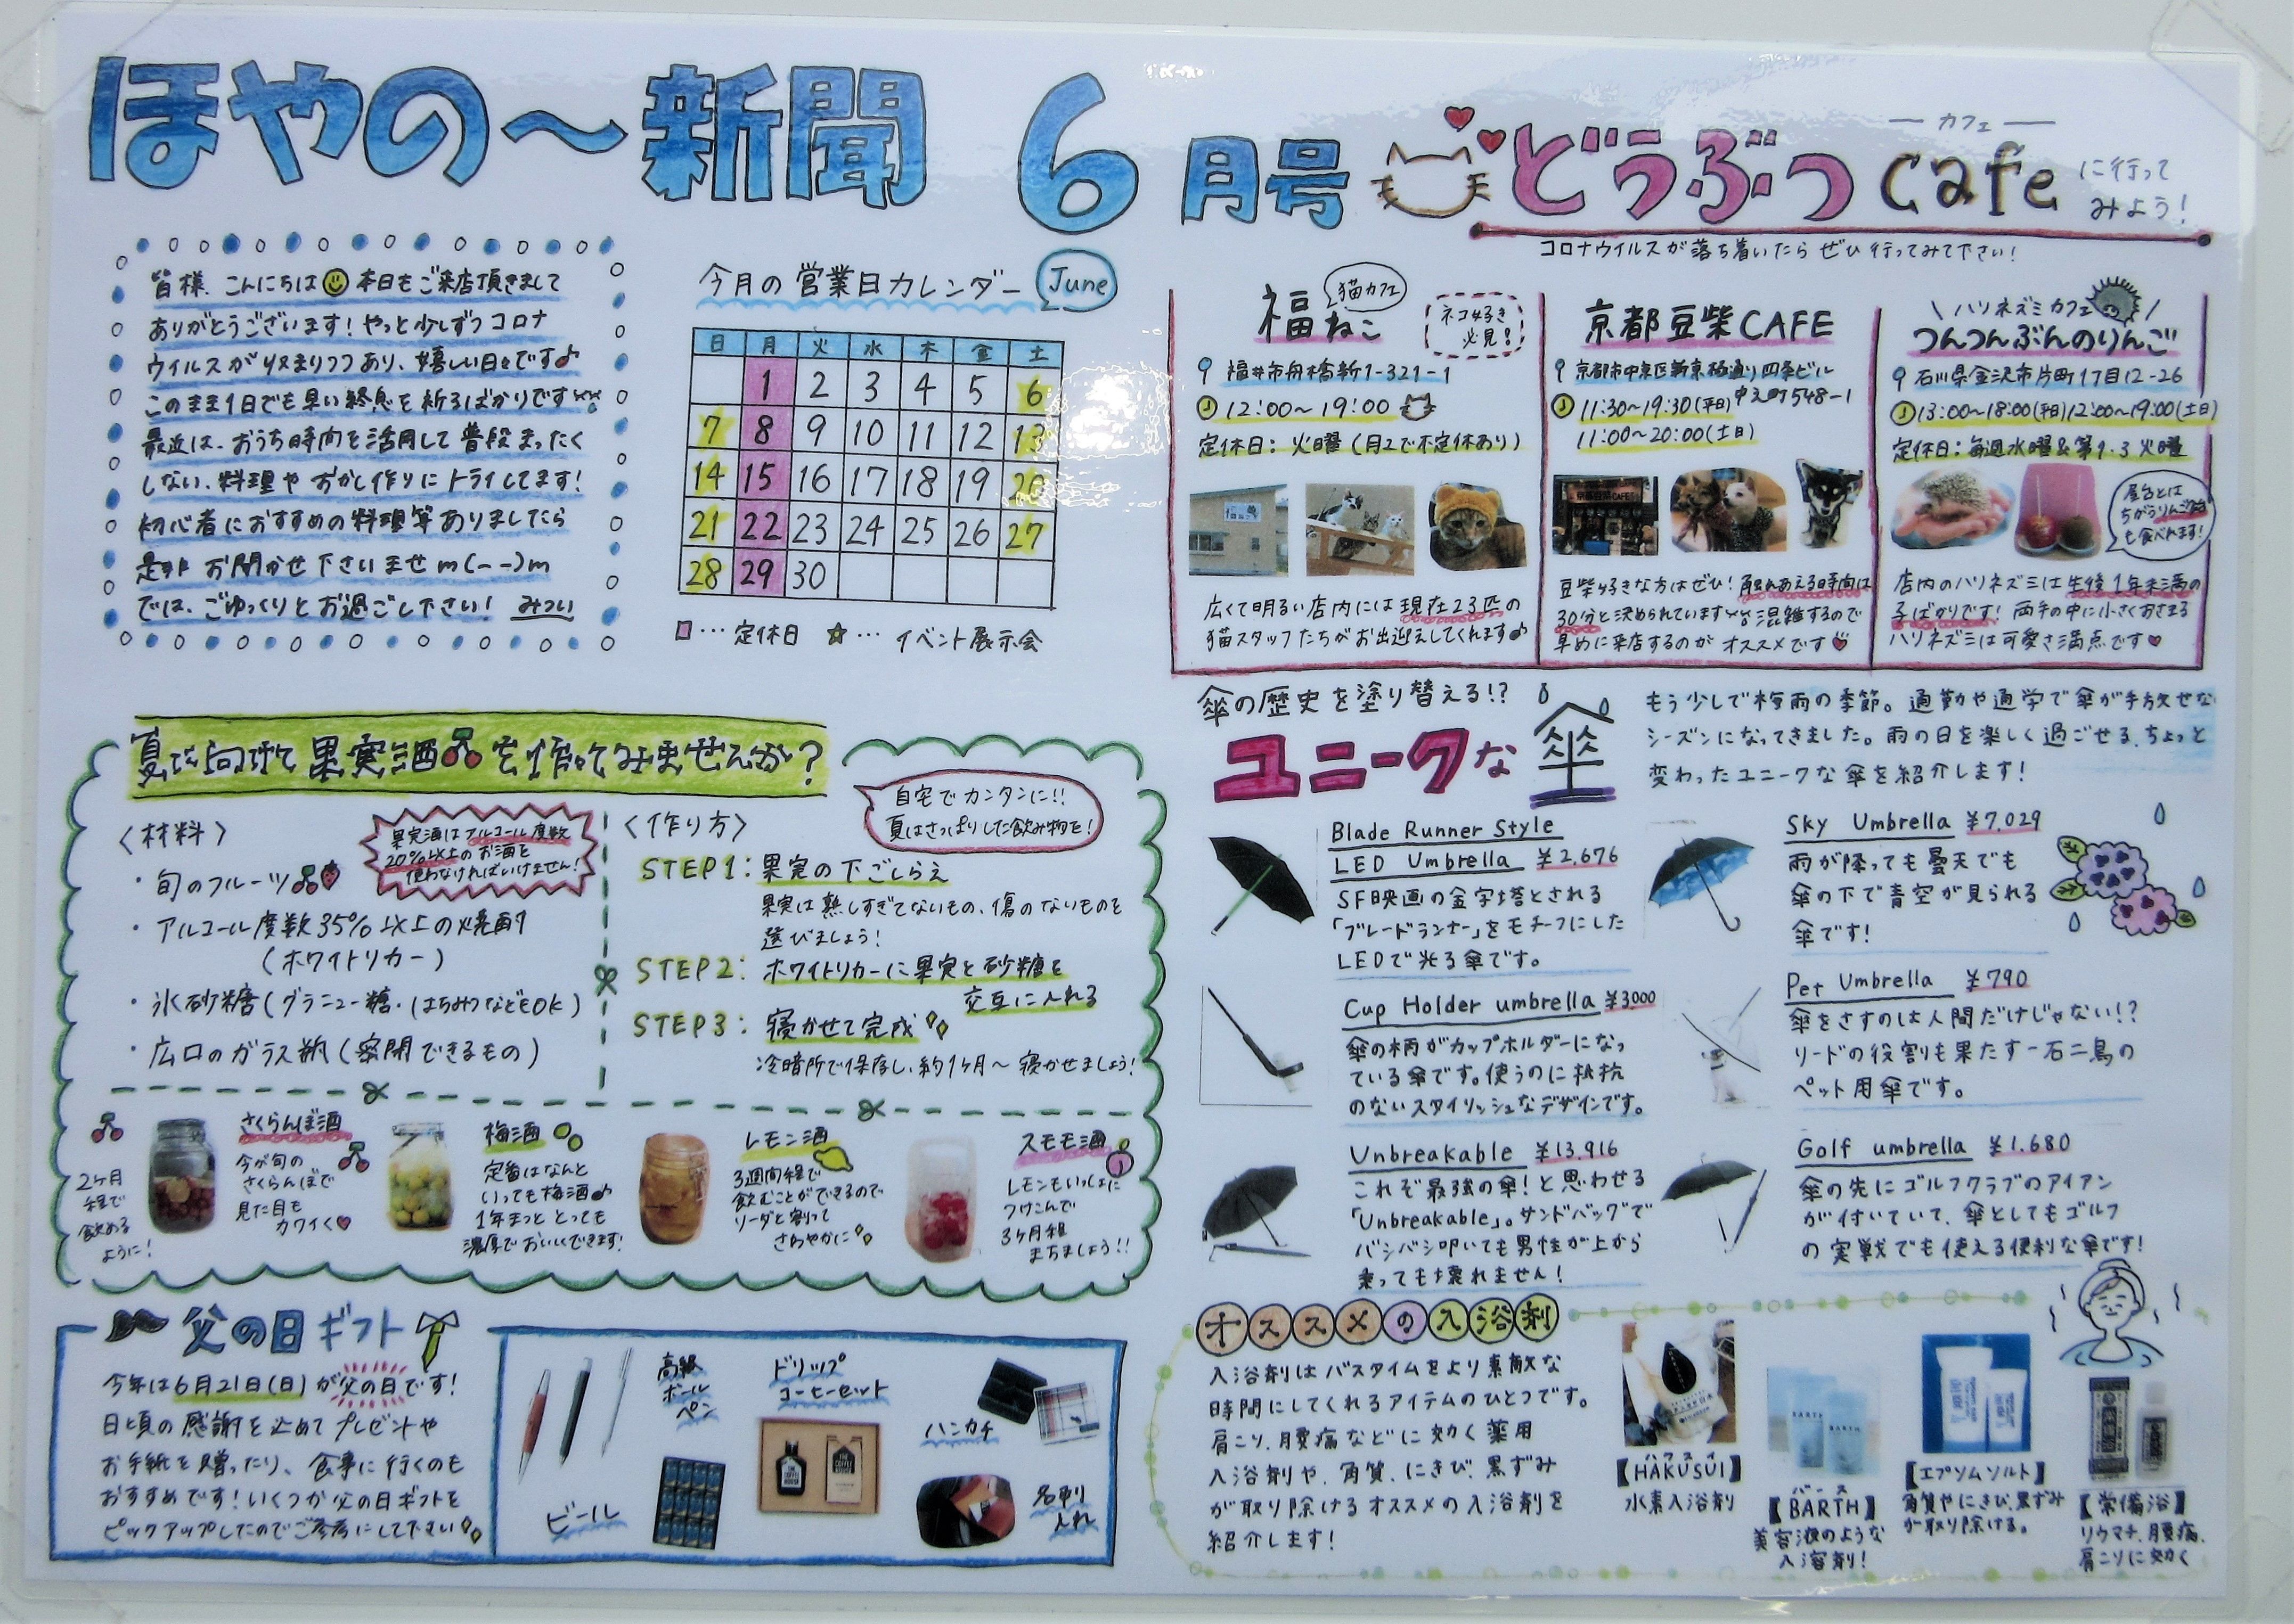 ほやの〜新聞 6月号
皆様、こんにちは 本日もご来店頂きまして
ありがとうございます！やっと少しずつコロナ
ウイルスが収まりつつあり、嬉しい日々です♪
このまま1日でも早い終息を祈るばかりです
最近は、おうち時間を活用して普段まったく
しない、料理やおかし作りにトライしてます！
初心者におすすめの料理等ありましたら
是非お聞かせ下さいませm(--)m
では、ごゆっくりとお過ごし下さい！ みつい
今月の営業日カレンダー June
日 月 火 水 木 金 土
1 2 3 4 5 6
7 8 9 10 11 12 13
14 15 16 17 18 19 20
21 22 23 24 25 26 27
28 29 30
… 定休日 ☆… イベント展示会
どうぶつ cafe に行って
カフェ
みよう！
コロナウイルスが落ち着いたら ぜひ行ってみて下さい！
福ねこ
猫カフェ
ネコ好き
必見！
福井市舟橋新1-321-1
12:00〜19:00
定休日：火曜（月2で不定休あり）
広くて明るい店内には現在23匹の
猫スタッフたちがお出迎えしてくれます♪
京都豆柴CAFE
京都市中京区新京極通り四条ビル
中之町548-1
11:30〜19:30(平日)
11:00〜20:00(土日)
京都豆柴CAFE
豆柴好きな方はぜひ！触れあえる時間は
30分と決められています 混雑するので
早めに来店するのがオススメです
\ハリネズミカフェ/
つんつんぶんのりんご
石川県金沢市片町1丁目12-26
13:00〜18:00(平日)12:00〜19:00(土日)
定休日：毎週水曜&第1・3火曜
屋台とは
ちがうりんご飴
も食べれます！
店内のハリネズミは生後1年未満の
子ばかりです！両手の中に小さくおさまる
ハリネズミは可愛さ満点です♥
夏に向けて果実酒を作ってみませんか？
〈材料〉
果実酒はアルコール度数
20%以上のお酒を
使わなければいけません！
・旬のフルーツ
・アルコール度数35%以上の焼酎
（ホワイトリカー）
・氷砂糖（グラニュー糖・はちみつなどもOK）
・広口のガラス瓶（密閉できるもの）
〈作り方〉
自宅でカンタンに!!
夏はさっぱりした飲み物を！
STEP1：果実の下ごしらえ
果実は熟しすぎてないもの、傷のないものを
選びましょう！
STEP2：ホワイトリカーに果実と砂糖を
交互に入れる
STEP3：寝かせて完成
冷暗所で保存し、約1ヶ月〜寝かせましょう！
2ヶ月
程で
飲める
ように！
さくらんぼ酒
今が旬の
さくらんぼで
見た目も
カワイく♥
梅酒
定番はなんと
いっても梅酒♪
1年まつととっても
濃厚でおいしくできます！
レモン酒
3週間程で
飲むことができるので
ソーダと割って
さわやかに
スモモ酒
レモンもいっしょに
つけこんで
3ヶ月程
まちましょう!!
傘の歴史を塗り替える!?
ユニークな傘
もう少しで梅雨の季節。通勤や通学で傘が手放せな
シーズンになってきました。雨の日を楽しく過ごせる、ちょっと
変わったユニークな傘を紹介します！
Blade Runner Style
LED Umbrella ¥2,676
SF映画の金字塔とされる
「ブレードランナー」をモチーフにした
LEDで光る傘です。
Sky Umbrella ¥7,029
雨が降っても曇天でも
傘の下で青空が見られる
傘です！
Cup Holder umbrella ¥3,000
傘の柄がカップホルダーになっ
ている傘です。使うのに抵抗
のないスタイリッシュなデザインです。
Pet Umbrella ¥790
傘をさすのは人間だけじゃない!?
リードの役割も果たす一石二鳥の
ペット用傘です。
Unbreakable ¥13,916
これぞ最強の傘！と思わせる
「Unbreakable」。サンドバッグで
バシバシ叩いても男性が上から
乗っても壊れません！
Golf umbrella ¥1,680
傘の先にゴルフクラブのアイアン
が付いていて、傘としてもゴルフ
の実戦でも使える便利な傘です！
父の日ギフト
今年は6月21日(日)が父の日です！
日頃の感謝を込めてプレゼントや
お手紙を贈ったり、食事に行くのも
おすすめです！いくつか父の日ギフトを
ピックアップしたのでご参考にして下さい
高級
ボール
ペン
ドリップ
コーヒーセット
ハンカチ
ビール
名刺
入れ
オススメの入浴剤
入浴剤はバスタイムをより素敵な
時間にしてくれるアイテムのひとつです。
肩こり、腰痛などに効く薬用
入浴剤や、角質、にきび、黒ずみ
が取り除けるオススメの入浴剤を
紹介します！
ハクスイ
【HAKUSUI】
水素入浴剤
BARTH
バース
【BARTH】
美容液のような
入浴剤！
【エプソムソルト】
角質やにきび、黒ずみ
が取り除ける。
【常備浴】
リウマチ、腰痛、
肩こりに効く